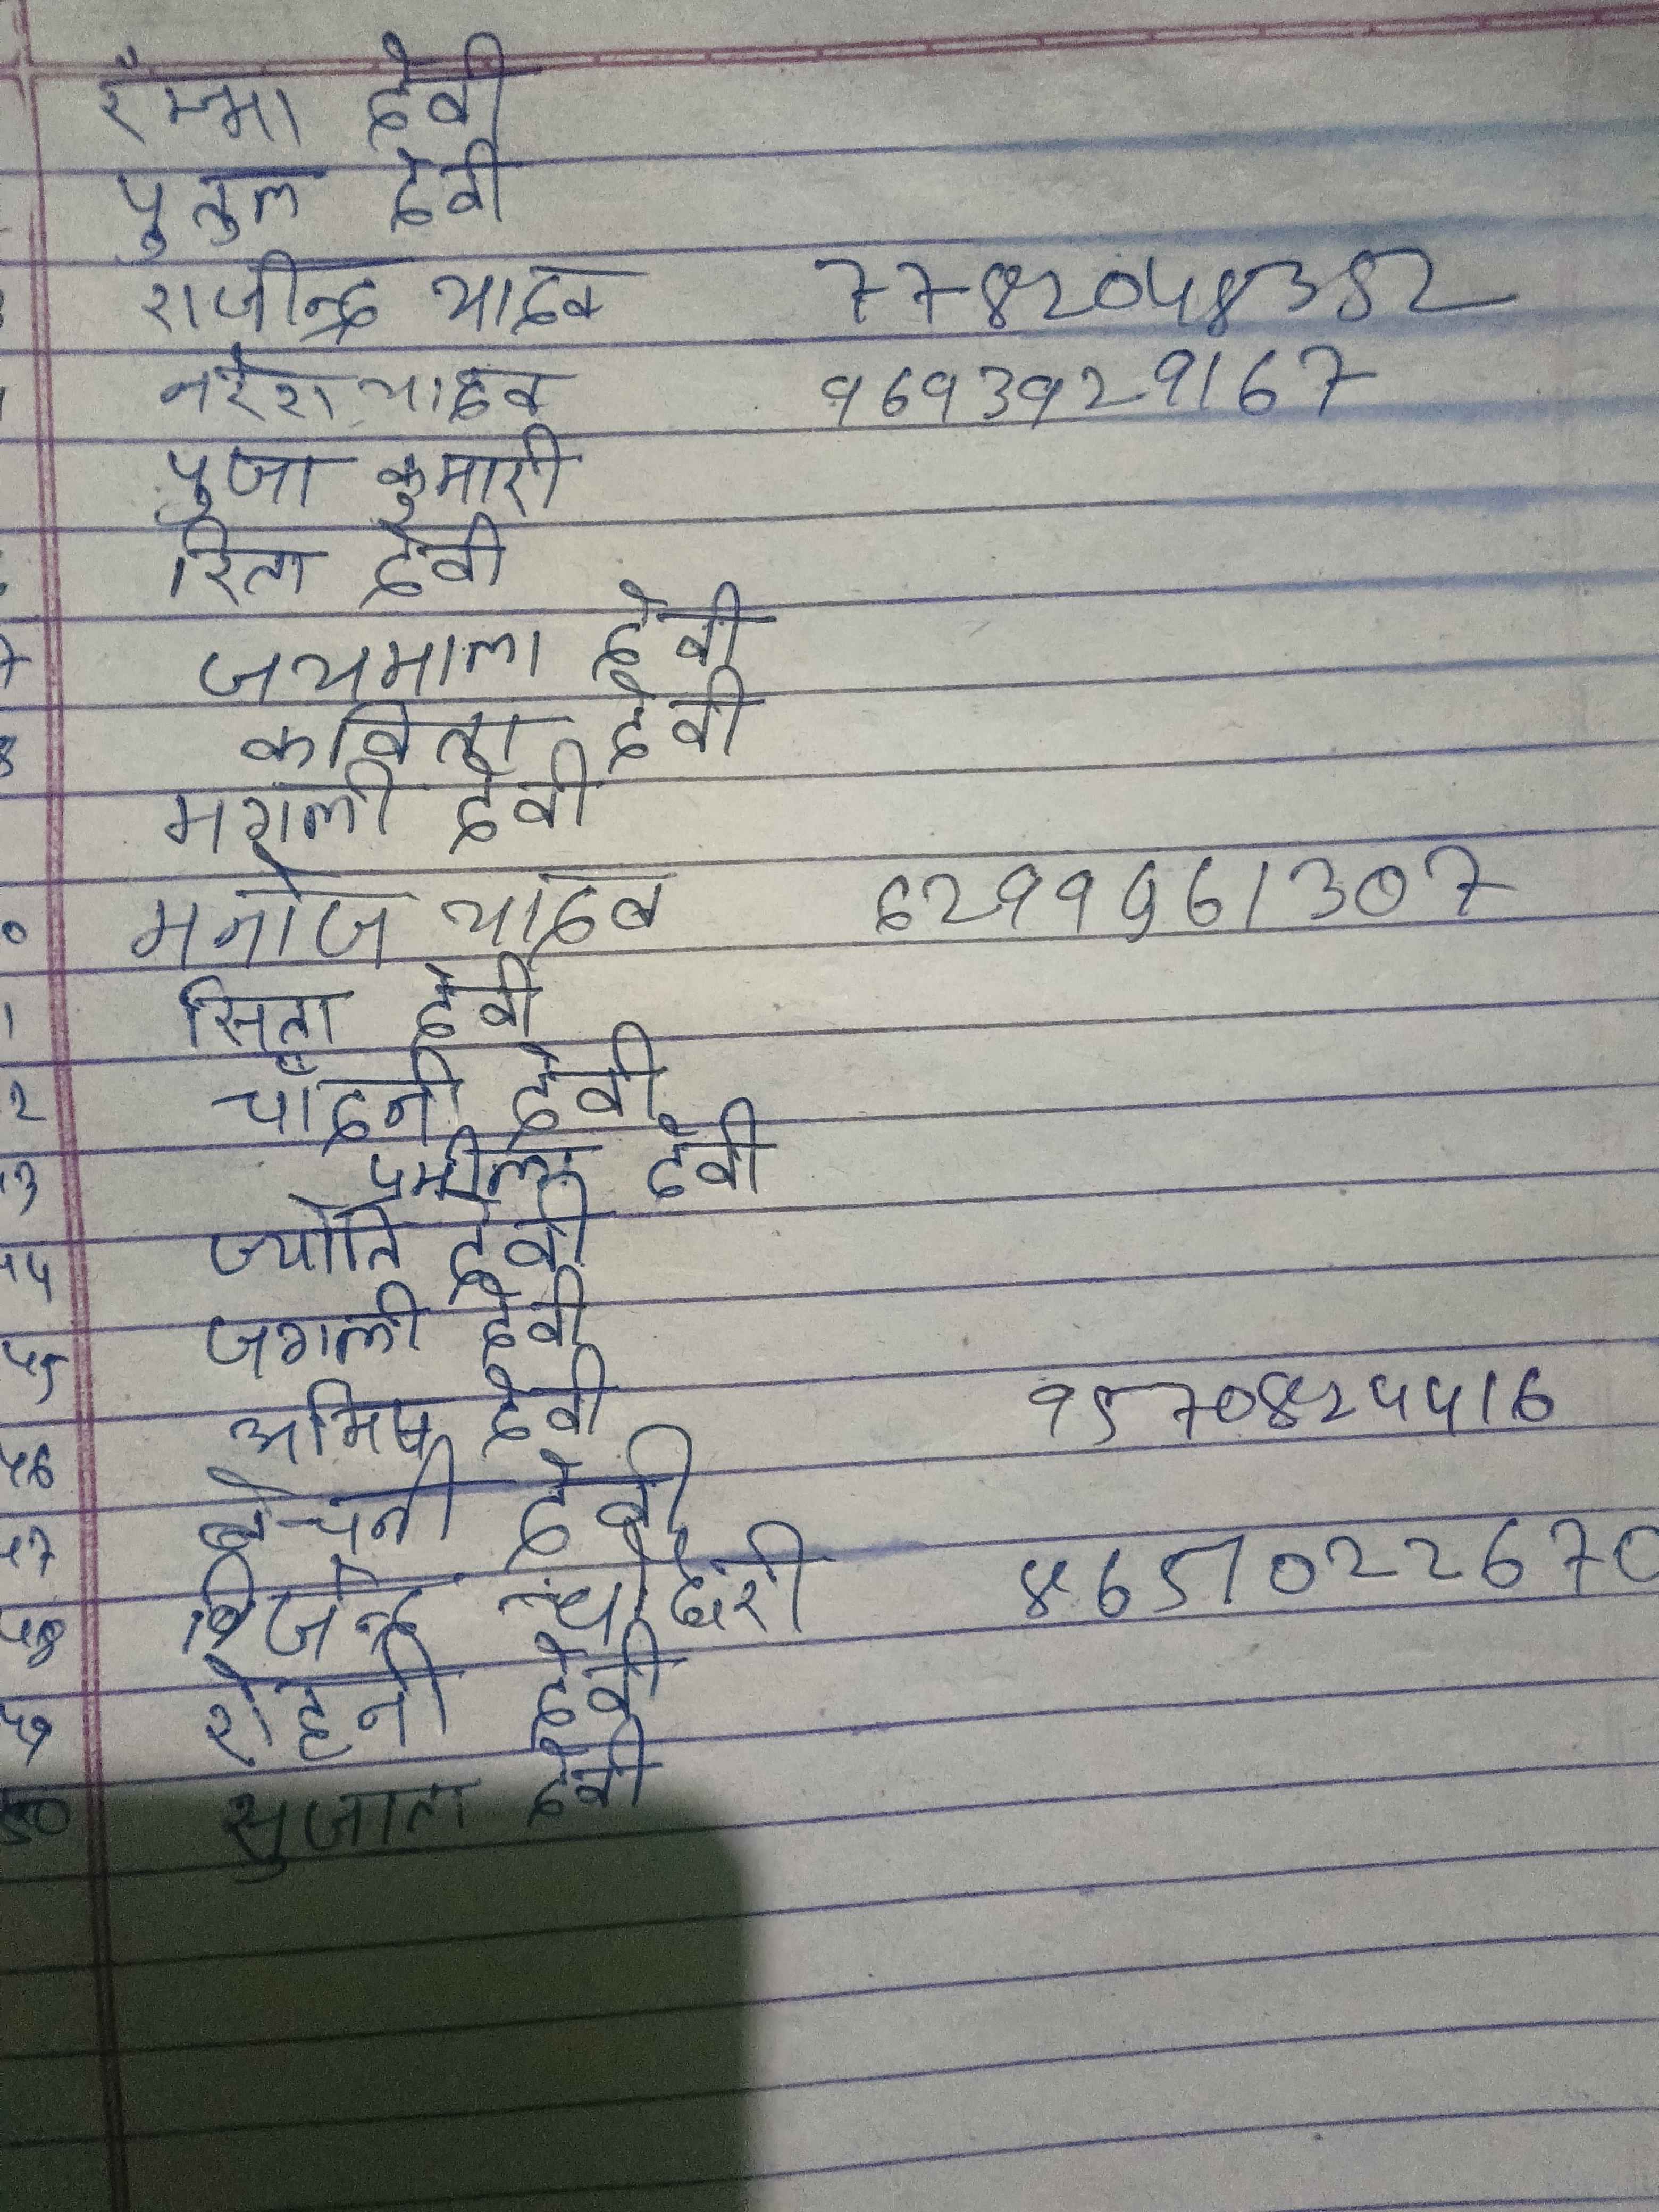 रेम्मा देवी
पुतुल देवी
राजीन्द्र यादव 7782048382
नरेश यादव 9693929167
पुजा कुमारी
रिता देवी
7 जयमाला देवी
8 कविता देवी
मगली देवी
0 मनोज यादव 6299961307
1 सिता देवी
2 चाँदनी देवी
13 प्रमीला देवी
14 ज्योति देवी
15 जगली देवी
16 अमिषा देवी 9570824416
17 बेचनी देवी
18 बिजेन्द्र चौधरी 8651022670
19 रोहनी देवी
सुजाता देवी